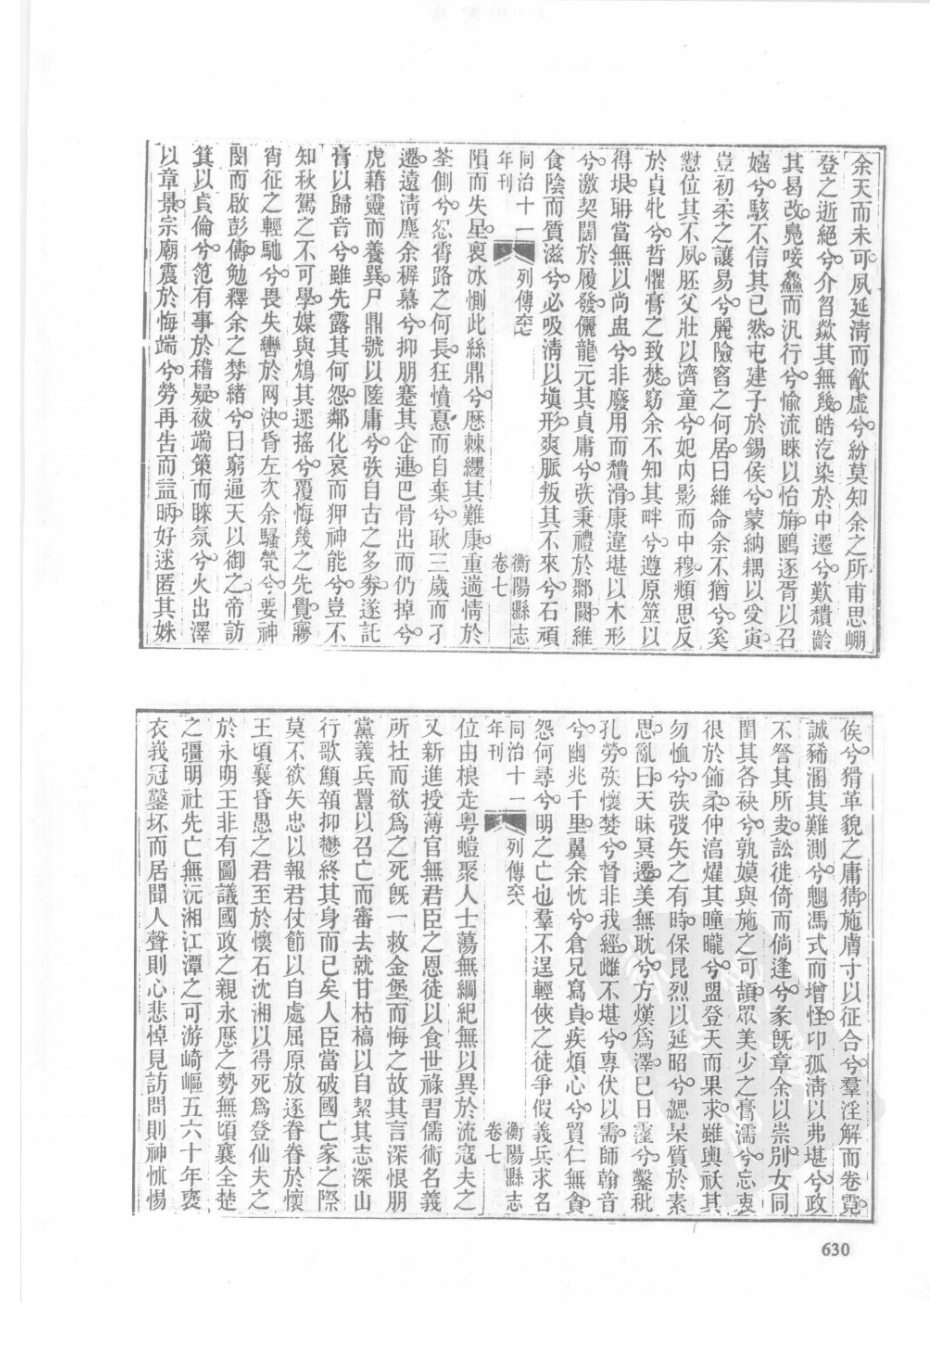 余天而未可夙延清而歈虛兮紛莫知余之所甫思嵎
登之逝絕兮介召歘其無幾皓汔染於中遷兮歎穨齡
其曷改鳧唼鱻而汎行兮愉流睞以怡旃鷗逐胥以召
嬉兮駭不信其已然屯建子於錫侯兮蒙納耦以受寅
豈初柔之讓易兮麗險窞之何居曰維命余不猶兮奚
懟位其不夙胚父壯以濟童兮妃內影而中穆頫思反
於貞牝兮哲懼膏之致焚竊余不知其畔兮遵原筮以
得垠䎶當無以尚蛊兮非廢用而穨滑康違堪以木形
兮激契闊於履發儷龍元其貞庸兮弥秉禮於鄹闕維
食陰而質滋兮必吸淸以塡形爽脈叛其不來兮石頑
同治十一年刊
列傳
衡陽縣志卷七
隕而失星裒冰惻此絲鼎兮歷棘纆其難康重適情於
荃側兮忽霄路之何長狂憤惪而自棄兮耿三歲而孑
遷遠淸塵余穉慕兮抑朋蹇其企連巴骨出而仍掉兮
虎藉靈而養巽尸鼎號以陸庸兮弥自古之多劵遂託
膏以歸音兮雖先露其何怨鄰化哀而狎神能兮豈不
知秋駕之不可學媒與鴆其遝搖兮覆悔幾之先覺寤
宵征之輕馳兮畏失轡於网泱昏左次余騷煢兮要神
閔而啟彭儔勉釋余之棼緒兮曰窮通天以御之帝訪
箕以貞倫兮範有事於稽疑祓端策而睞氛兮火出澤
以章景宗廟震於悔端兮勞再告而諡昞好逑匿其姝
俟兮猾革貌之庸猜施膚寸以征合兮羣淫解而卷霓
誠豨溷其難測兮魍馮式而增怪卬孤淸以弗堪兮政
不詧其所叏訟徒倚而倘逢兮彖旣章余以崇別女同
閨其各袂兮孰嫫與施之可頡眾美少之膏濡兮忘衷
很於飾柔仲滈燿其曈曨兮盟登天而果求雖輿祅其
勿恤兮弥弢矢之有時保昆烈以延昭兮緦杲質於素
思亂曰天昧冥遷美無耽兮方熯爲澤巳日霪兮鑿秕
孔勞弥懷婪兮督非我經雌不堪兮專伏以需師翰音
兮幽兆千里翼余忱兮倉兄寫貞疾煩心兮貿仁無貪
怨何尋兮明之亡也羣不逞輕俠之徒爭假義兵求名
同治十一年刊
列傳
衡陽縣志卷七
位由榔走粵螘聚人士蕩無綱紀無以異於流寇夫之
又新進授薄官無君臣之恩徒以食世祿習儒術名義
所拄而欲爲之死旣一救金堡而悔之故其言深恨朋
黨義兵囂以召亡而審去就甘枯槁以自絜其志深山
行歌顦顇抑鬱終其身而已矣人臣當破國亡家之際
莫不欲矢忠以報君仗節以自處屈原放逐眷眷於懷
王頃襄昏愚之君至於懷石沈湘以得死爲登仙夫之
於永明王非有圖議國政之親永歷之勢無頃襄全楚
之彊明社先亡無沅湘江潭之可游崎嶇五六十年裒
衣峩冠鑿坏而居聞人聲則心悲悼見訪問則神怵惕
630